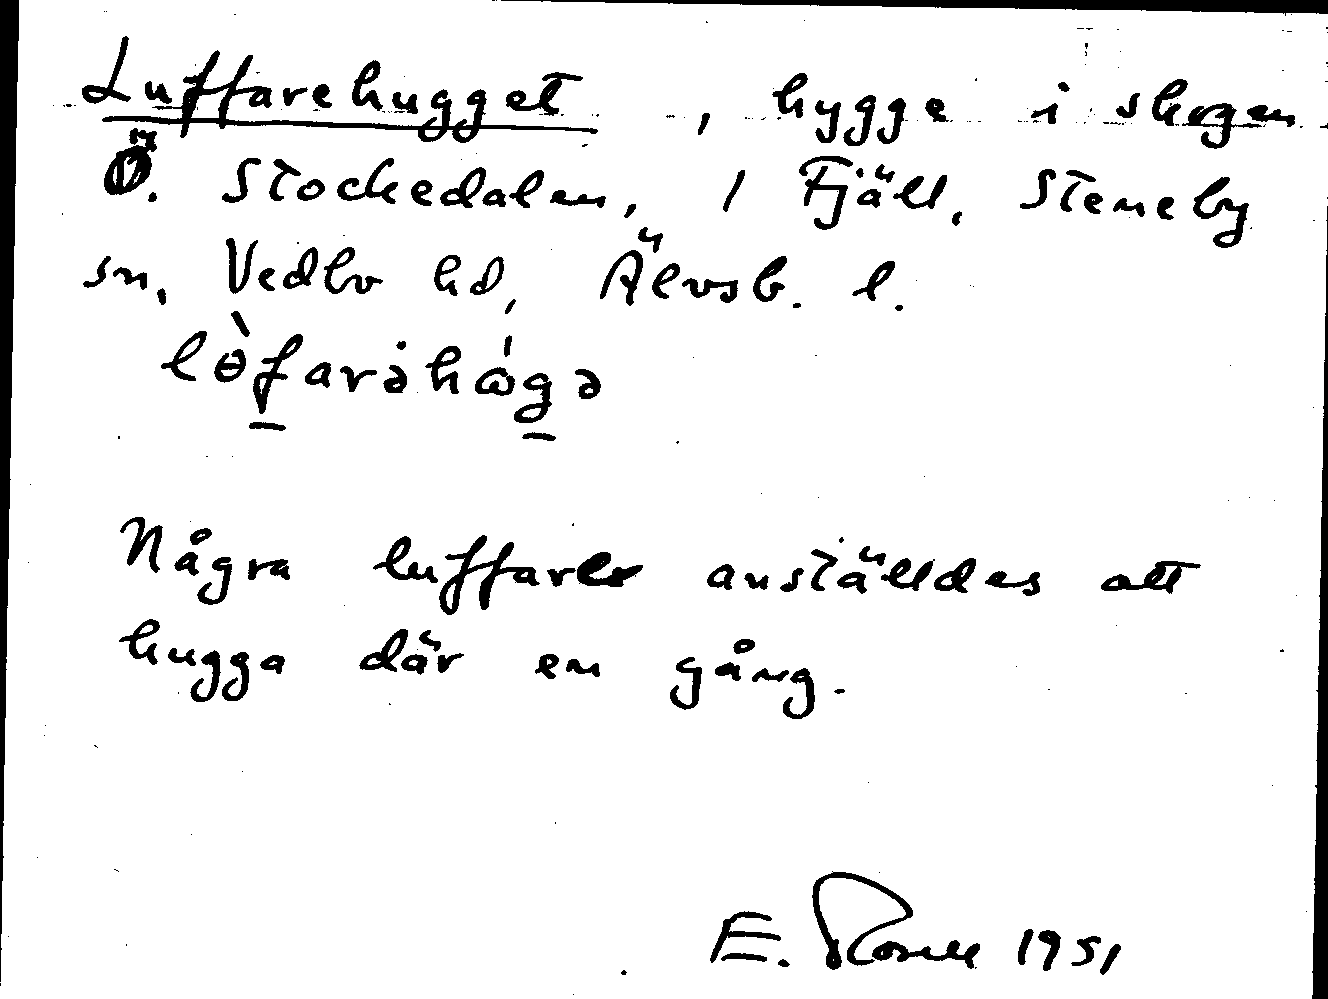 Luffarehugget, hygge i skogen
Ö. Stockedalen, 1 Fjäll, Steneby
sn, Vedbo hd, Älvsb. l.
lòfarəhωgə
Några luffare anställdes att
hugga där en gång.
E. 1951